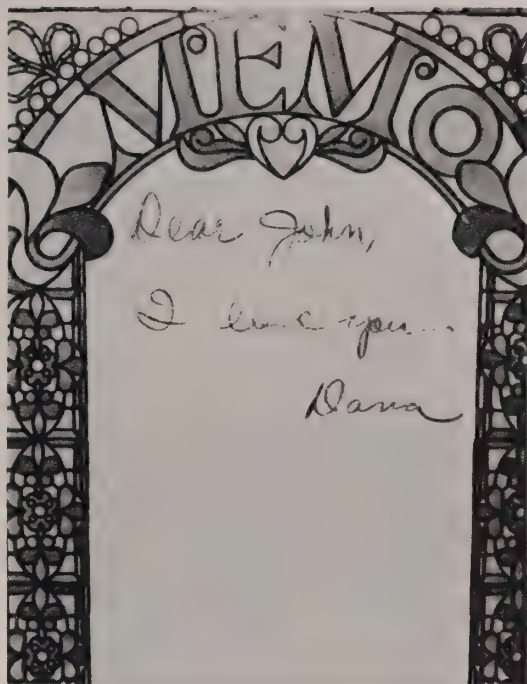 MEMO
Dear John,
I love you...
Dana